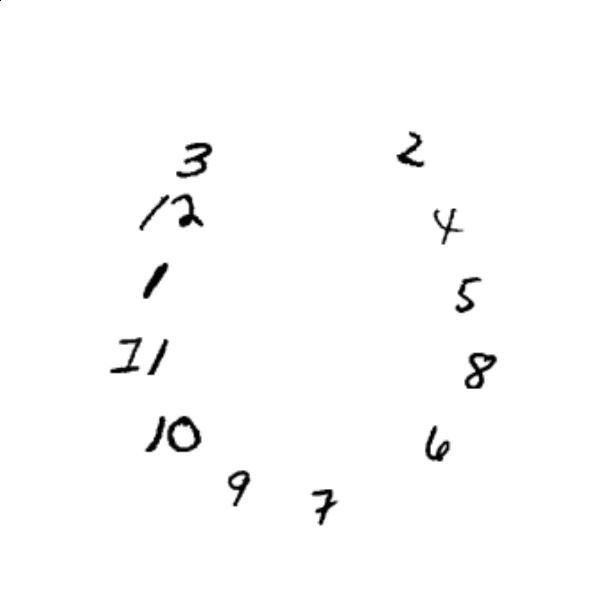 3 2
12 4
1 5
11 8
10 6
9 7